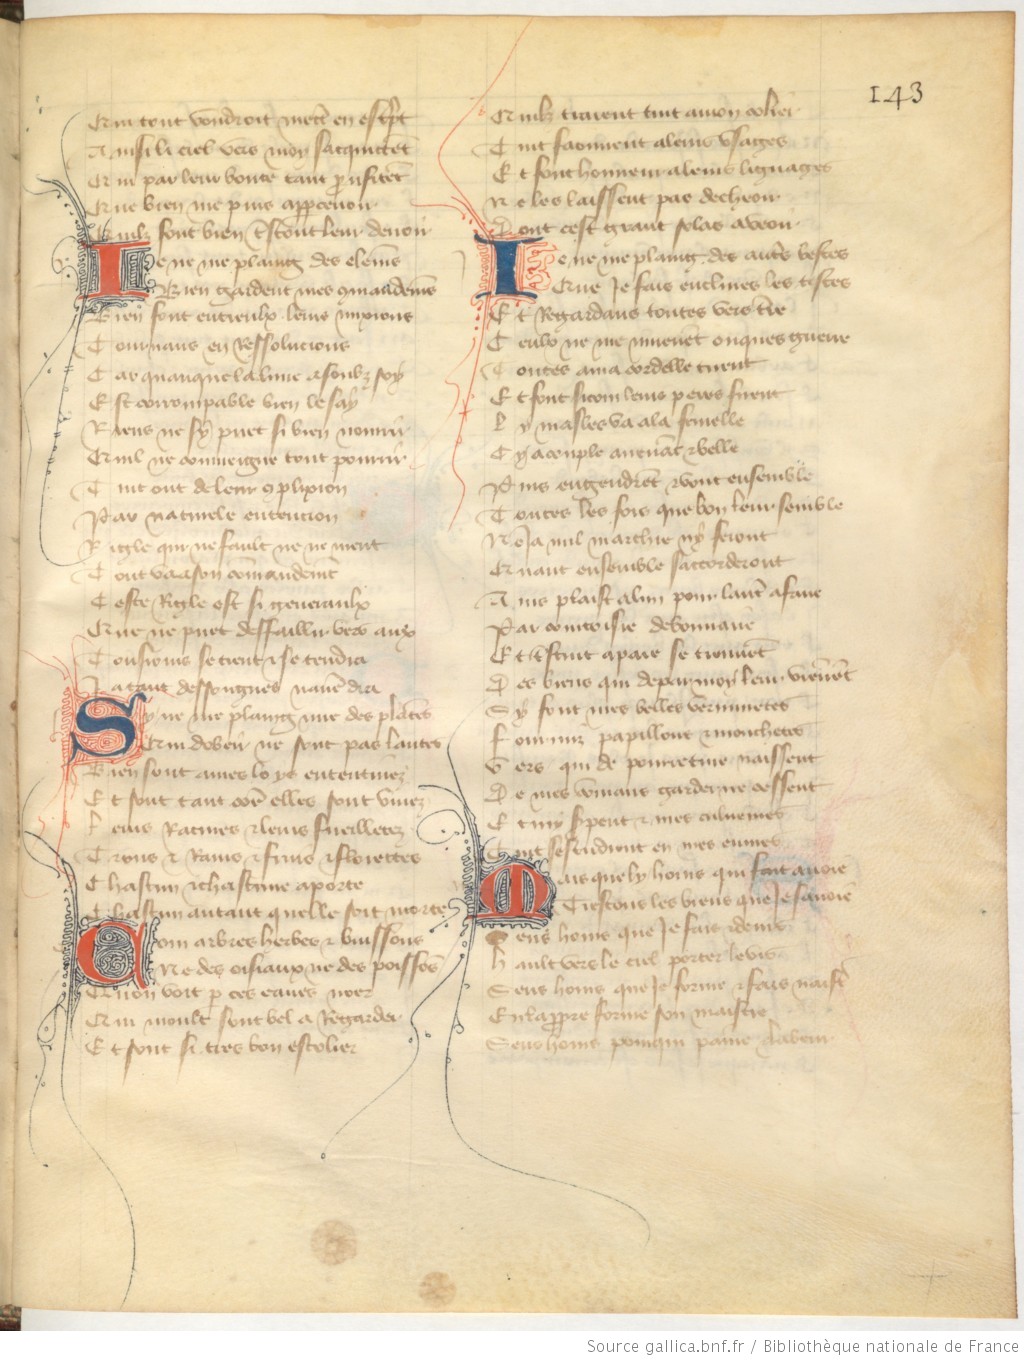 143
Qui tout vondroit mectre en escript
Ainsi li ciel vers moy sacquittent
Qui par leur bonte tant profitent
Que bien me puis appercevoir
Quilz font bien trestout leur devoir
Ie ne me plaing des elemens
Bien gardent mes commandemens
Bien font entreulx leurs mixions
Tournans en ressolucions
Car quanque la lune a soubz soy
Est corrompable bien le say
Riens ne sy puet si bien nourrir
Quil ne conveigne tout pourrir
Tuit ont de leur complixion
Par naturele entencion
Rigle qui ne fault ne ne ment
Tout va a son commandement
Ceste Rigle est si generaulx
Que ne puet deffaillir vers aux
Tousiours se tient et se tendra
Ia tant
Sy ne me plaing mie des plantes
Qui dobeir ne sont pas lantes
Bien sont a mes loys ententives
Et font tant com elles sont vives
Leurs Racines et leurs fueilletez
Trons et Rains et fruis et floiettes
Chascun et chascune aporte
Chascun autant quelle soit morte
Com arbres herbes et buissons
Ne des oisiaux ne des poissons
Quon voit par ces eaues noer
Qui moult sont bel a Regarder
Et sont si tres bon escolier
Quilz traient tuit a mon colier
Tuit faonnent a leurs usages
Et font honneur a leurs lignages
Ne les laissent pas decheoir
Dont cest grant solas a veoir
Ie ne me plaing des autres bestes
Que Je fais enclines les testes
Et Regardans toutes vers terre
Ceulx ne me muevent onques guerre
Toutes a ma cordelle tirent
Et font si com leurs peres firent
Ly masles va a la femelle
Cy a couple avenant et belle
Puis engendrent et vont ensemble
Toutes les fois que bon leur semble
Ne Ja nul marchie ny feront
Quant ensemble saccorderont
Ains plaist a lun pour lautre a faire
Par courtoisie debonnaire
Et trestuit apaie se tiennent
Des biens qui de par moy leur viennent
Sy font mes belles verminetes
Fourmiz papillons et mouchetes
Vers qui de pourreture naissent
De mes commans garder ne cessent
Et mi serpent et mes culuevres
Tuit sestudient en mes euvres
Mais que ly homs qui fait avoie
Trestous les biens que Je savoie
Seus homs que Je fais et demis
hault vers le ciel porter le vis
Seus homs que Je forme et fais naistre
En la propre forme son maistre
Seus homs pour qui paine
Source gallica.bnf.fr / Bibliothèque nationale de France